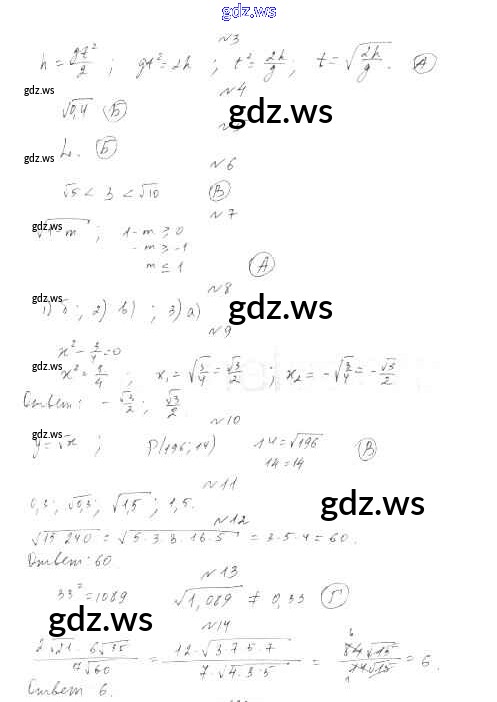 gdz.ws
№3
h = gt²/2 ; gt² = 2h ; t² = 2h/g ; t = √(2h/g). (А)
gdz.ws
№4
√0,4 (Б) gdz.ws
L. (Б)
gdz.ws
№6
√5 < 3 < √10 (В)
№7
gdz.ws
√(1-m) ; 1-m ≥ 0
-m ≥ -1
m ≤ 1 (А)
№8
gdz.ws gdz.ws
1) б ; 2) в) ; 3) а)
№9
x² - 3/4 = 0
gdz.ws
x² = 3/4 ; x₁ = √(3/4) = √3/2 ; x₂ = -√(3/4) = -√3/2
Ответ: -√3/2 ; √3/2
№10
gdz.ws
y = √x ; P(196; 14) 14 = √196 (В)
14 = 14
№11
gdz.ws
0,3; √0,3; √1,5; 1,5.
№12
√(15·240) = √(5·3·3·16·5) = 3·5·4 = 60.
Ответ: 60.
№13
33² = 1089 √1,089 ≠ 0,33
gdz.ws gdz.ws
№14
(2√21 · 6√35)/(7√60) = (12·√(3·7·5·7))/(7·√(4·3·5)) = (84√15)/(14√15) = 6.
Ответ 6.